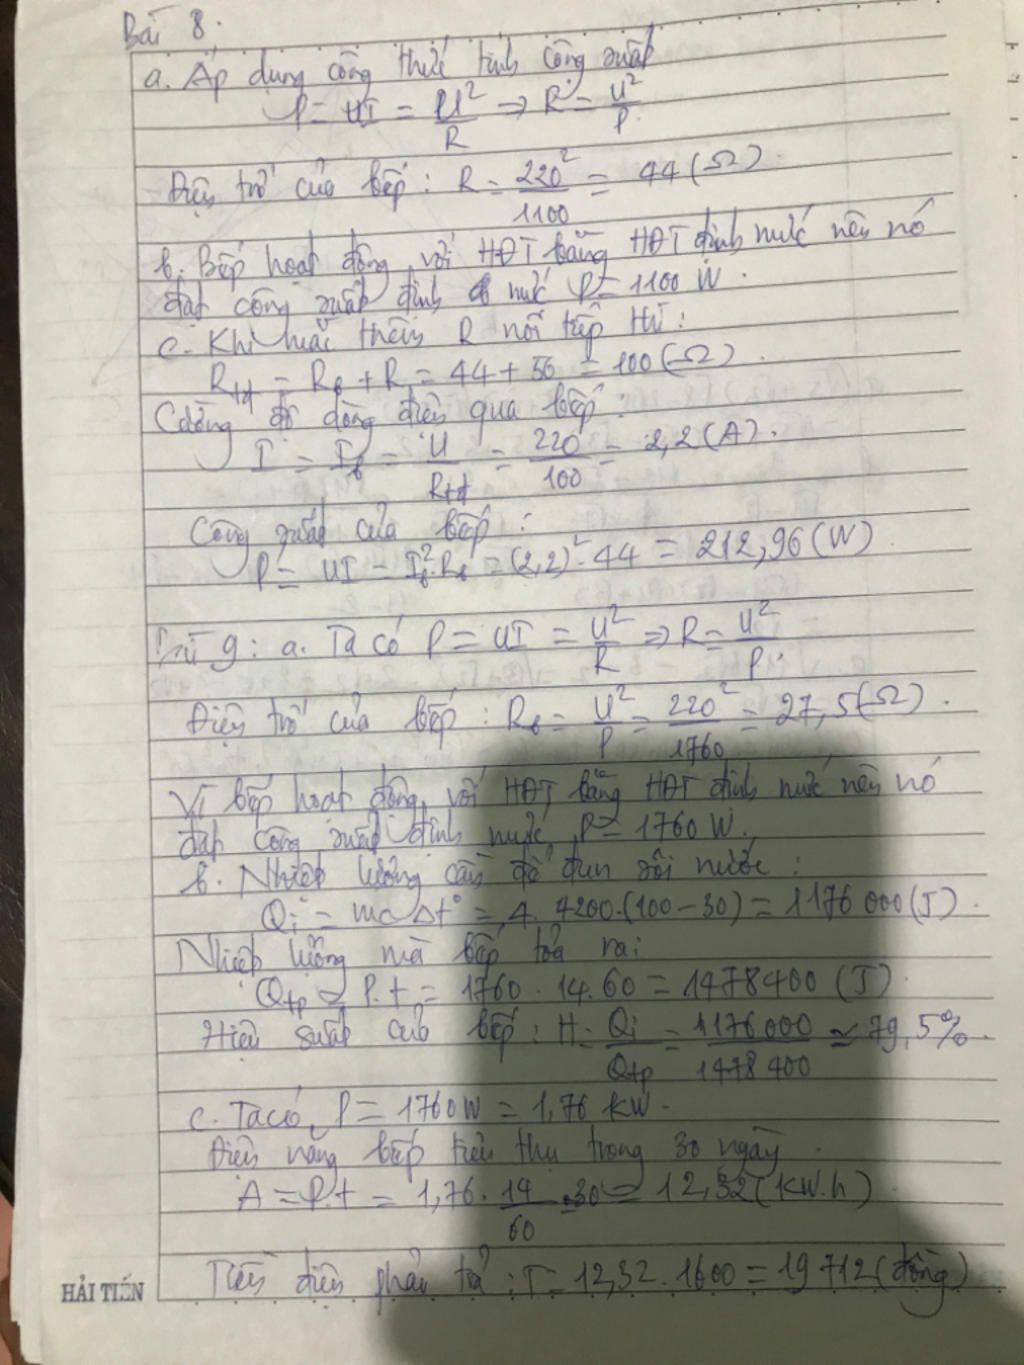 Bài 8.
a. Áp dụng công thức tính công suất
P = UI = U²/R ⇒ R = U²/P
Điện trở của bếp : R = 220²/1100 = 44 (Ω).
b. Bếp hoạt động với HĐT bằng HĐT định mức nên nó
đạt công suất định mức P = 1100 W.
c. Khi mắc thêm R nối tiếp thì :
Rtđ = Rb + R = 44 + 56 = 100 (Ω).
Cường độ dòng điện qua bếp :
I = Ib = U/Rtđ = 220/100 = 2,2 (A).
Công suất của bếp :
P = UI = Ib².Rb = (2,2)².44 = 212,96 (W)
Bài 9 : a. Ta có P = UI = U²/R ⇒ R = U²/P.
Điện trở của bếp : Rb = U²/P = 220²/1760 = 27,5 (Ω).
Vì bếp hoạt động với HĐT bằng HĐT định mức nên nó
đạt công suất định mức P = 1760 W.
b. Nhiệt lượng cần để đun sôi nước :
Qi = mcΔt° = 4. 4200.(100 - 30) = 1176 000 (J).
Nhiệt lượng mà bếp tỏa ra :
Qtp = P.t = 1760 . 14.60 = 1478400 (J).
Hiệu suất của bếp : H = Qi/Qtp = 1176 000/1478 400 ≃ 79,5%.
c. Ta có P = 1760 W = 1,76 KW.
Điện năng bếp tiêu thụ trong 30 ngày.
A = P.t = 1,76 . 14/60 .30 = 12,32 (KW.h)
Tiền điện phải trả : T = 12,32 . 1600 = 19 712 (đồng)
HẢI TIẾN